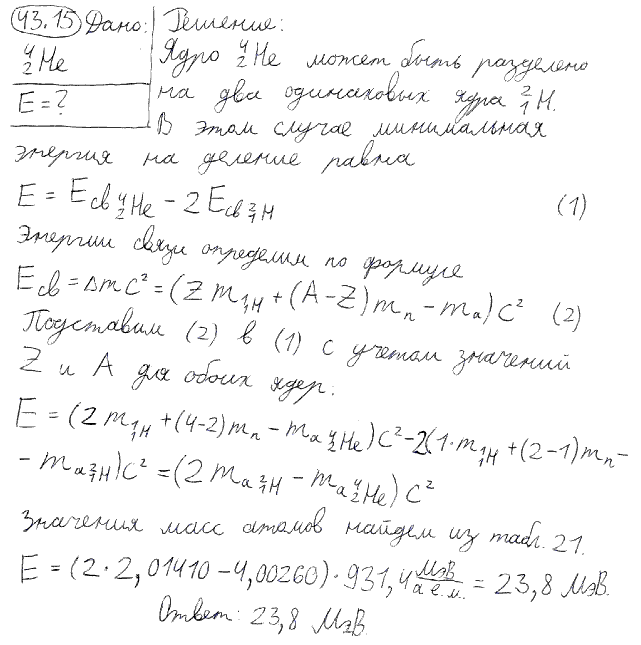 43.15 Дано: Решение:
⁴₂He Ядро ⁴₂He может быть разделено
E = ? на два одинаковых ядра ²₁H.
В этом случае минимальная
энергия на деление равна
E = E св ⁴₂He − 2 E св ²₁H (1)
Энергии связи определим по формуле
E св = Δmc² = (Z m ¹₁H + (A − Z) mₙ − mₐ) c² (2)
Подставим (2) в (1) с учетом значений
Z и A для обоих ядер:
E = (2 m ¹₁H + (4-2) mₙ − mₐ ⁴₂He) c² − 2(1·m ¹₁H + (2-1) mₙ −
− mₐ ²₁H) c² = (2 mₐ ²₁H − mₐ ⁴₂He) c²
Значения масс атомов найдем из табл. 21.
E = (2·2,01410 − 4,00260)·931,4 МэВ/а.е.м. = 23,8 МэВ.
Ответ: 23,8 МэВ.